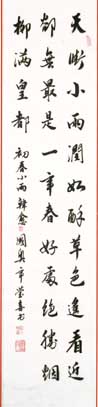 天街小雨潤如酥草色遥看近
却無最是一年春好處絶勝烟
柳滿皇都 初春小雨 韓愈